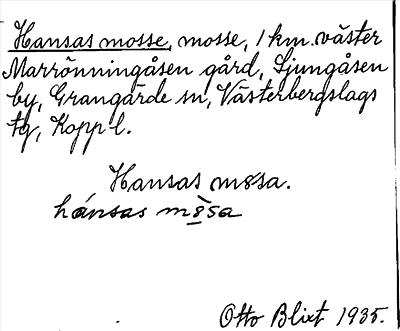 Hansas mosse, mosse, 1 km. väster
Marrönningåsen gård, Ljungåsen
by, Grangärde sn, Västerbergslags
tg, Kopp l.
Hansas m8sa.
hánsas m8̀sa
Otto Blixt 1935.